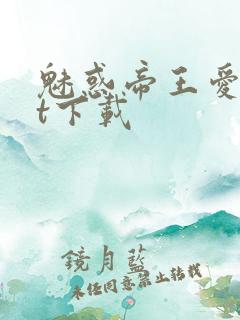 魅惑帝王愛
t下載
鏡月藍
未经同意禁止转载